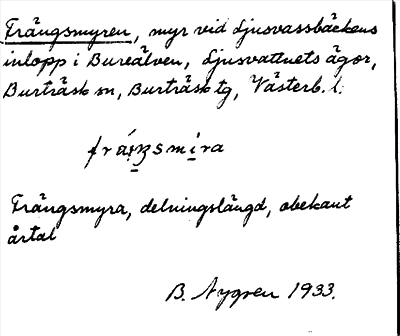 Trångsmyren, myr vid Ljusvassbäckens
inlopp i Bureälven, Ljusvattnets ägor,
Burträsk sn, Burträsk tg, Västerb. l.
Trångsmyra, delningslängd, obekant
årtal
B. Nygren 1933.